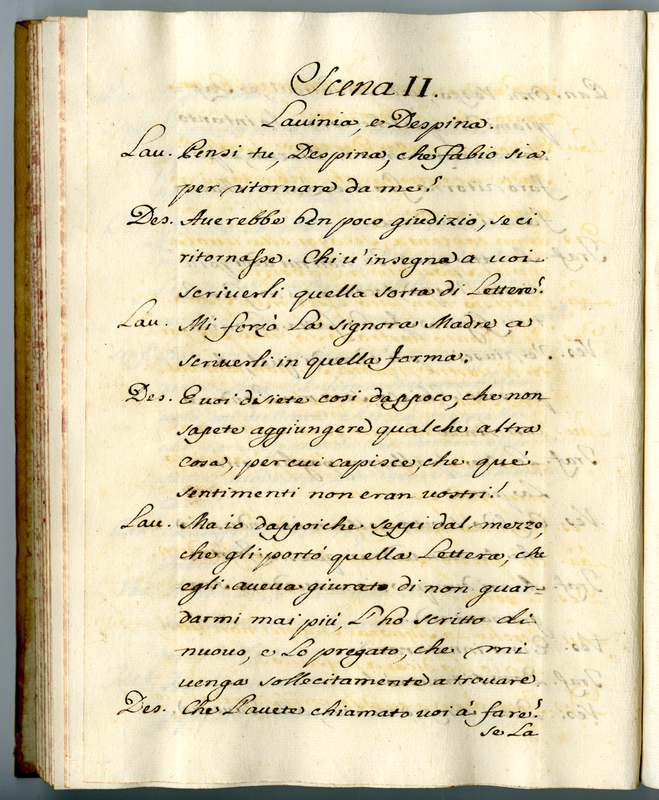 Scena II.
Lavinia, e Despina.
Lau. Pensi tu, Despina, che Fabio sia
per ritornare da me?
Des. Auerebbe ben poco giudizio, se ci
ritornasse. Chi u' insegna a uoi
scriuerli quella sorta di Lettere?
Lau. Mi forzò La signora Madre a
scriuerli in quella forma.
Des. E uoi siete così dappoco, che non
sapete aggiungere qualche altra
cosa, per cui capisce, che que'
sentimenti non eran uostri?
Lau. Ma io dappoiche seppi dal mezzo,
che gli portò quella Lettera, che
egli aueua giurato di non guar=
darmi mai più, L' ho scritto di
nuouo, e Lo pregato, che mi
uenga sollecitamente a trouare
Des. Che L'auete chiamato uoi à fare?
se La